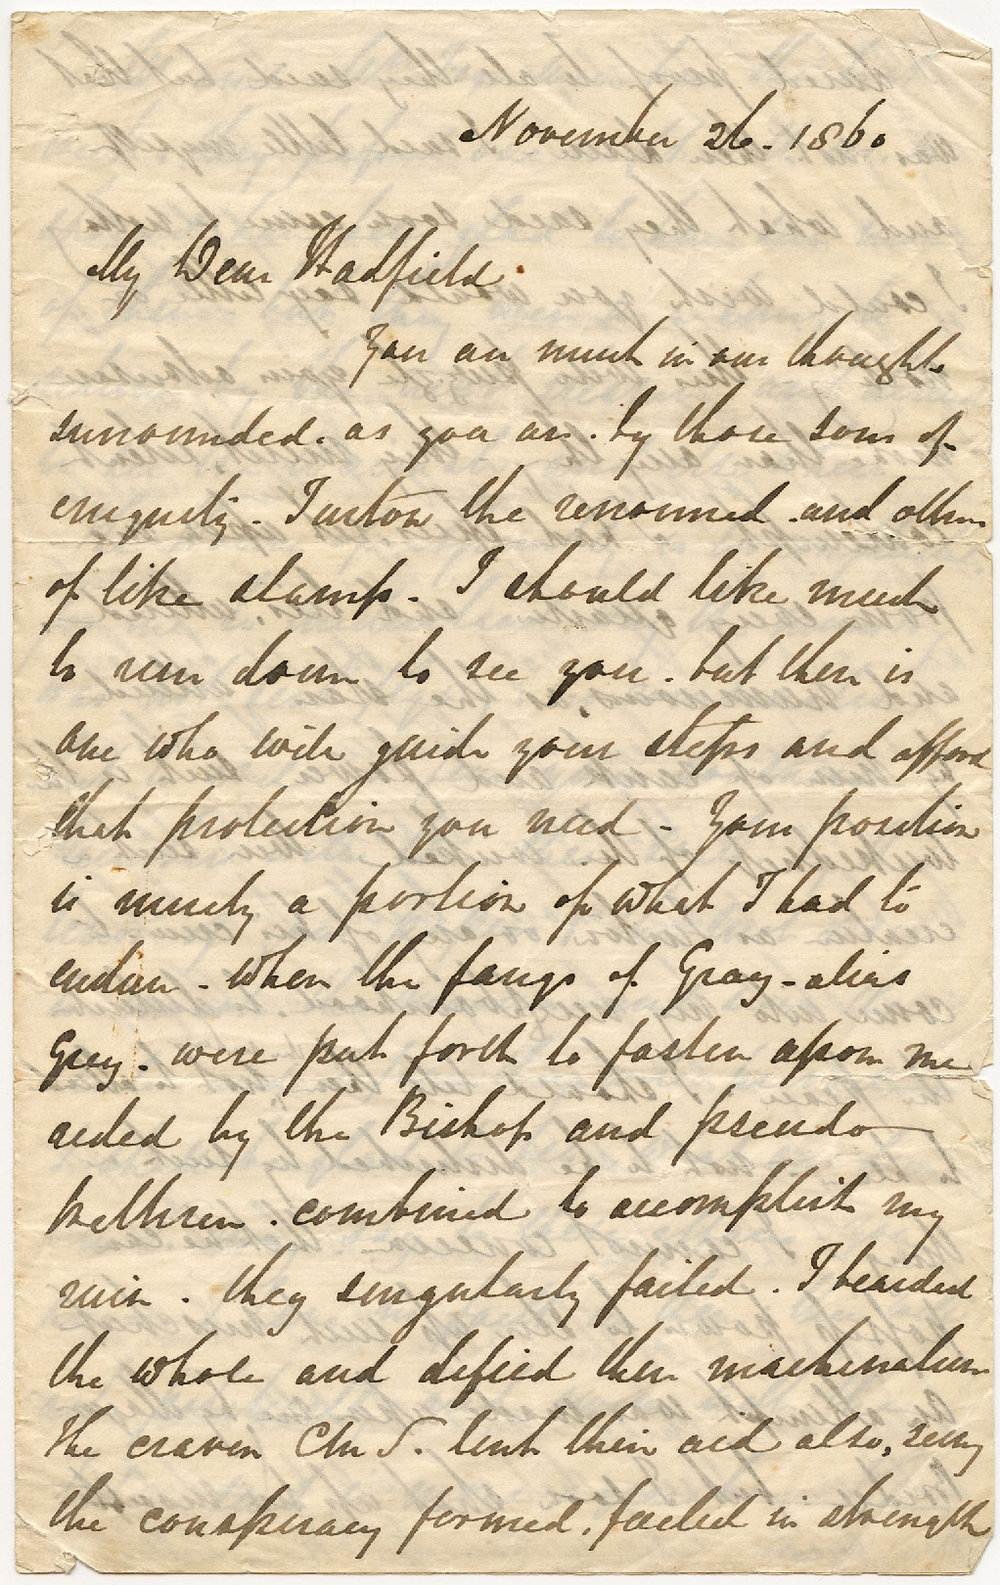 November 26. 1860
My Dear Hadfield
You are much in our thoughts
surrounded. as you are. by those sons of
eniquity - Turton the renowned. and others
of like stamp. I should like much
to run down to see you. but there is
one who will guide your steps and afford
that protection you need - Your position
is merely a portion of what I had to
endure - when the fangs of Gray - alias
Grey. were put forth to fasten upon me
aided by the Bishop and pseudo
brethren. combined to accomplish my
ruin. they singularly failed. I bearded
the whole and defied their machinations
the craven CMS. lent their aid also, seeing
the conspiracy formed, failed in strength